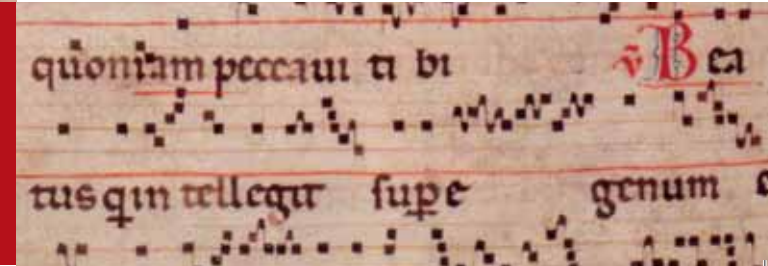 quoniam peccaui ti bi ṽ Bea
tus q̲ in tellegit sup̲e genum